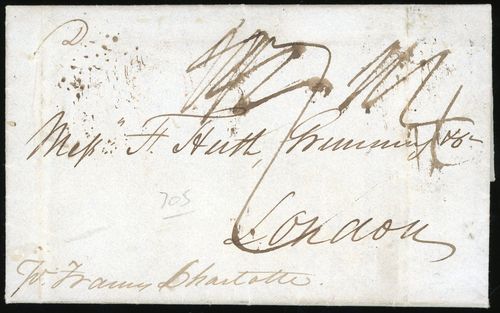 Messrs F. Huth, Grunning & Co
London
705
Pr. Francis Charlotte.